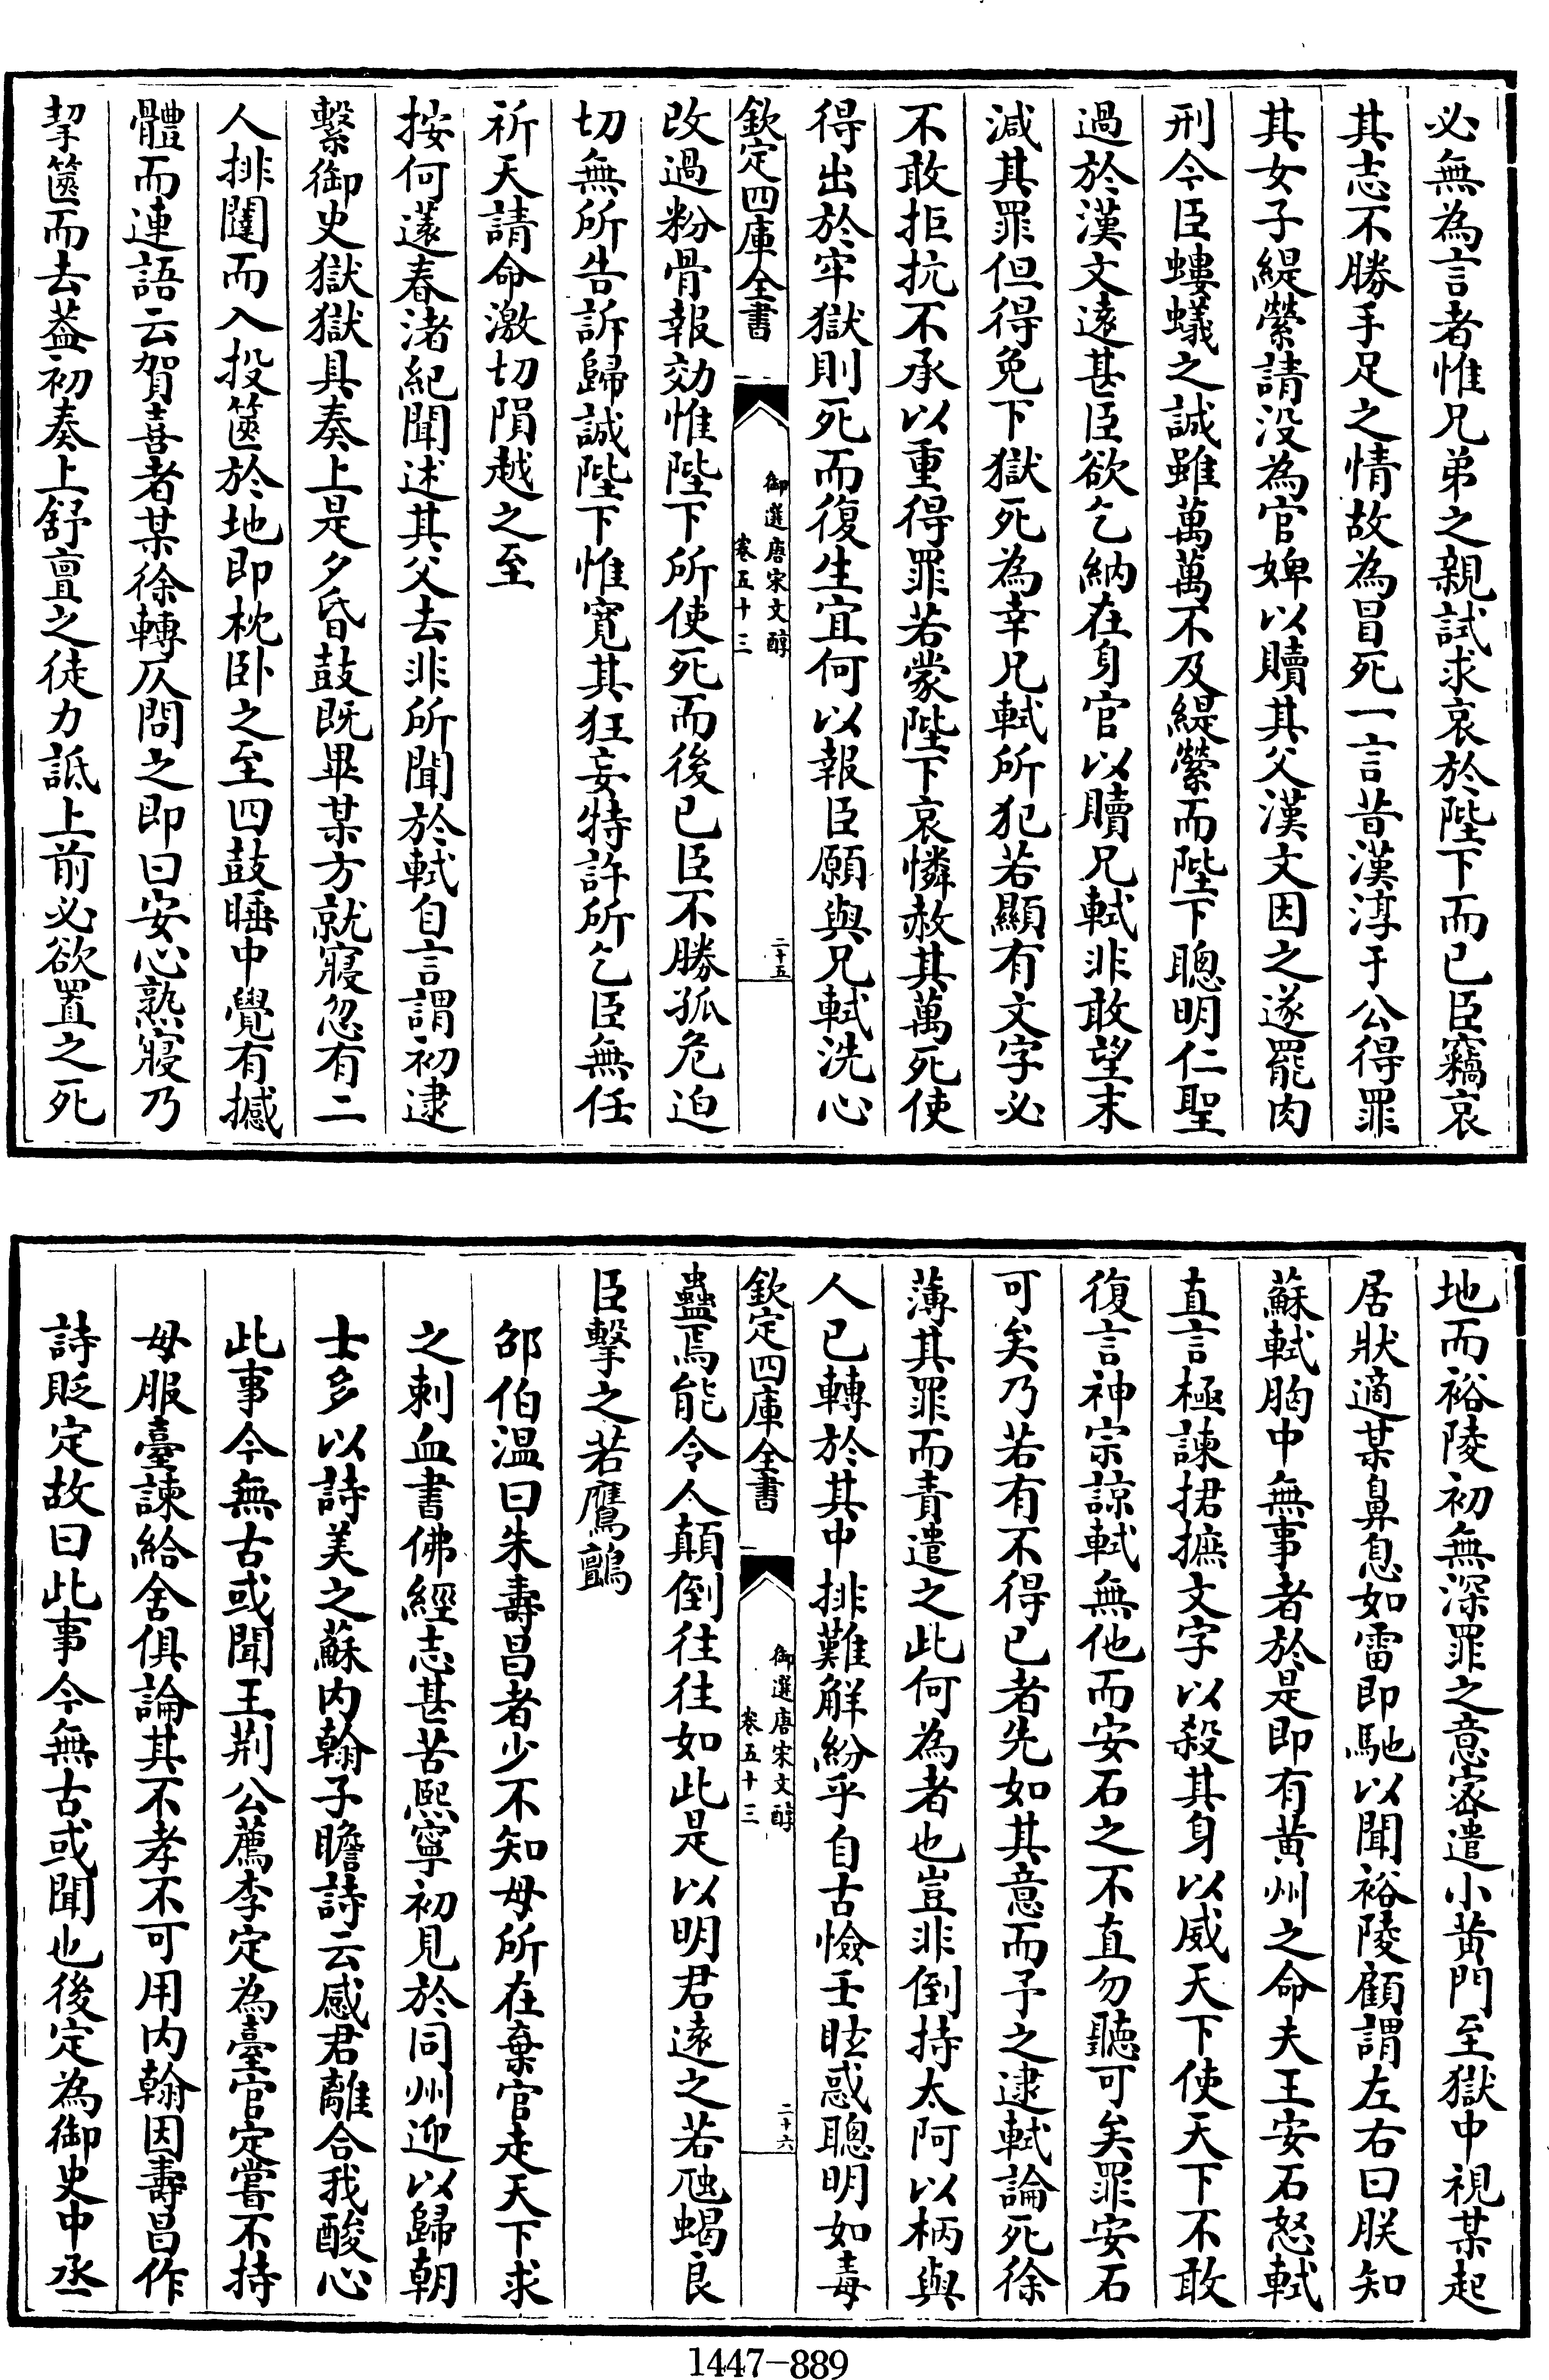 必無為言者惟兄弟之親試求哀於陛下而已臣竊哀
其志不勝手足之情故為冒死一言昔漢淳于公得罪
其女子緹縈請没為官婢以贖其父漢文因之遂罷肉
刑今臣螻蟻之誠雖萬萬不及緹縈而陛下聰明仁聖
過於漢文遠甚臣欲乞納在身官以贖兄軾非敢望末
減其罪但得免下獄死為幸兄軾所犯若顯有文字必
不敢拒抗不承以重得罪若蒙陛下哀憐赦其萬死使
得出於牢獄則死而復生宜何以報臣願與兄軾洗心
欽定四庫全書
御選唐宋文醇
卷五十三
二十五
改過粉骨報効惟陛下所使死而後已臣不勝孤危迫
切無所告訴歸誠陛下惟寛其狂妄特許所乞臣無任
祈天請命激切隕越之至
按何薳春渚紀聞述其父去非所聞於軾自言謂初逮
繫御史獄獄具奏上是夕昏鼓既畢某方就寢忽有二
人排闥而入投篋於地即枕卧之至四鼓睡中覺有撼
體而連語云賀喜者某徐轉仄問之即曰安心熟寢乃
挈篋而去葢初奏上舒亶之徒力詆上前必欲置之死
地而裕陵初無深罪之意宻遣小黄門至獄中視某起
居狀適某鼻息如雷即馳以聞裕陵顧謂左右曰朕知
蘇軾胸中無事者於是即有黄州之命夫王安石怒軾
直言極諫捃摭文字以殺其身以威天下使天下不敢
復言神宗諒軾無他而安石之不直勿聽可矣罪安石
可矣乃若有不得已者先如其意而予之逮軾論死徐
薄其罪而責遣之此何為者也豈非倒持太阿以柄與
人已轉於其中排難解紛乎自古憸壬眩惑聰明如毒
欽定四庫全書
御選唐宋文醇
卷五十三
二十六
蠱焉能令人顛倒往往如此是以明君遠之若虺蝎良
臣擊之若鷹鸇
邵伯温曰朱壽昌者少不知母所在棄官走天下求
之刺血書佛經志甚苦熙寧初見於同州迎以歸朝
士多以詩美之蘇内翰子瞻詩云感君離合我酸心
此事今無古或聞王荆公薦李定為臺官定嘗不持
母服臺諫給舍俱論其不孝不可用内翰因壽昌作
詩貶定故曰此事今無古或聞也後定為御史中丞
1447-889